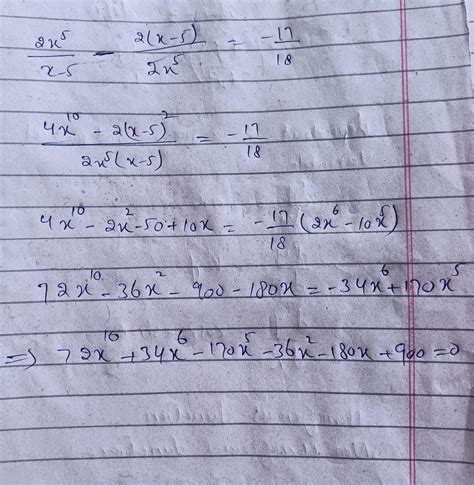 2x⁵/(x-5) - 2(x-5)/2x⁵ = -17/18
(4x¹⁰ - 2(x-5)²)/(2x⁵(x-5)) = -17/18
4x¹⁰ - 2x² - 50 + 10x = -17/18 (2x⁶ - 10x⁵)
72x¹⁰ - 36x² - 900 - 180x = -34x⁶ + 170x⁵
⇒ 72x¹⁰ + 34x⁶ - 170x⁵ - 36x² - 180x + 900 = 0